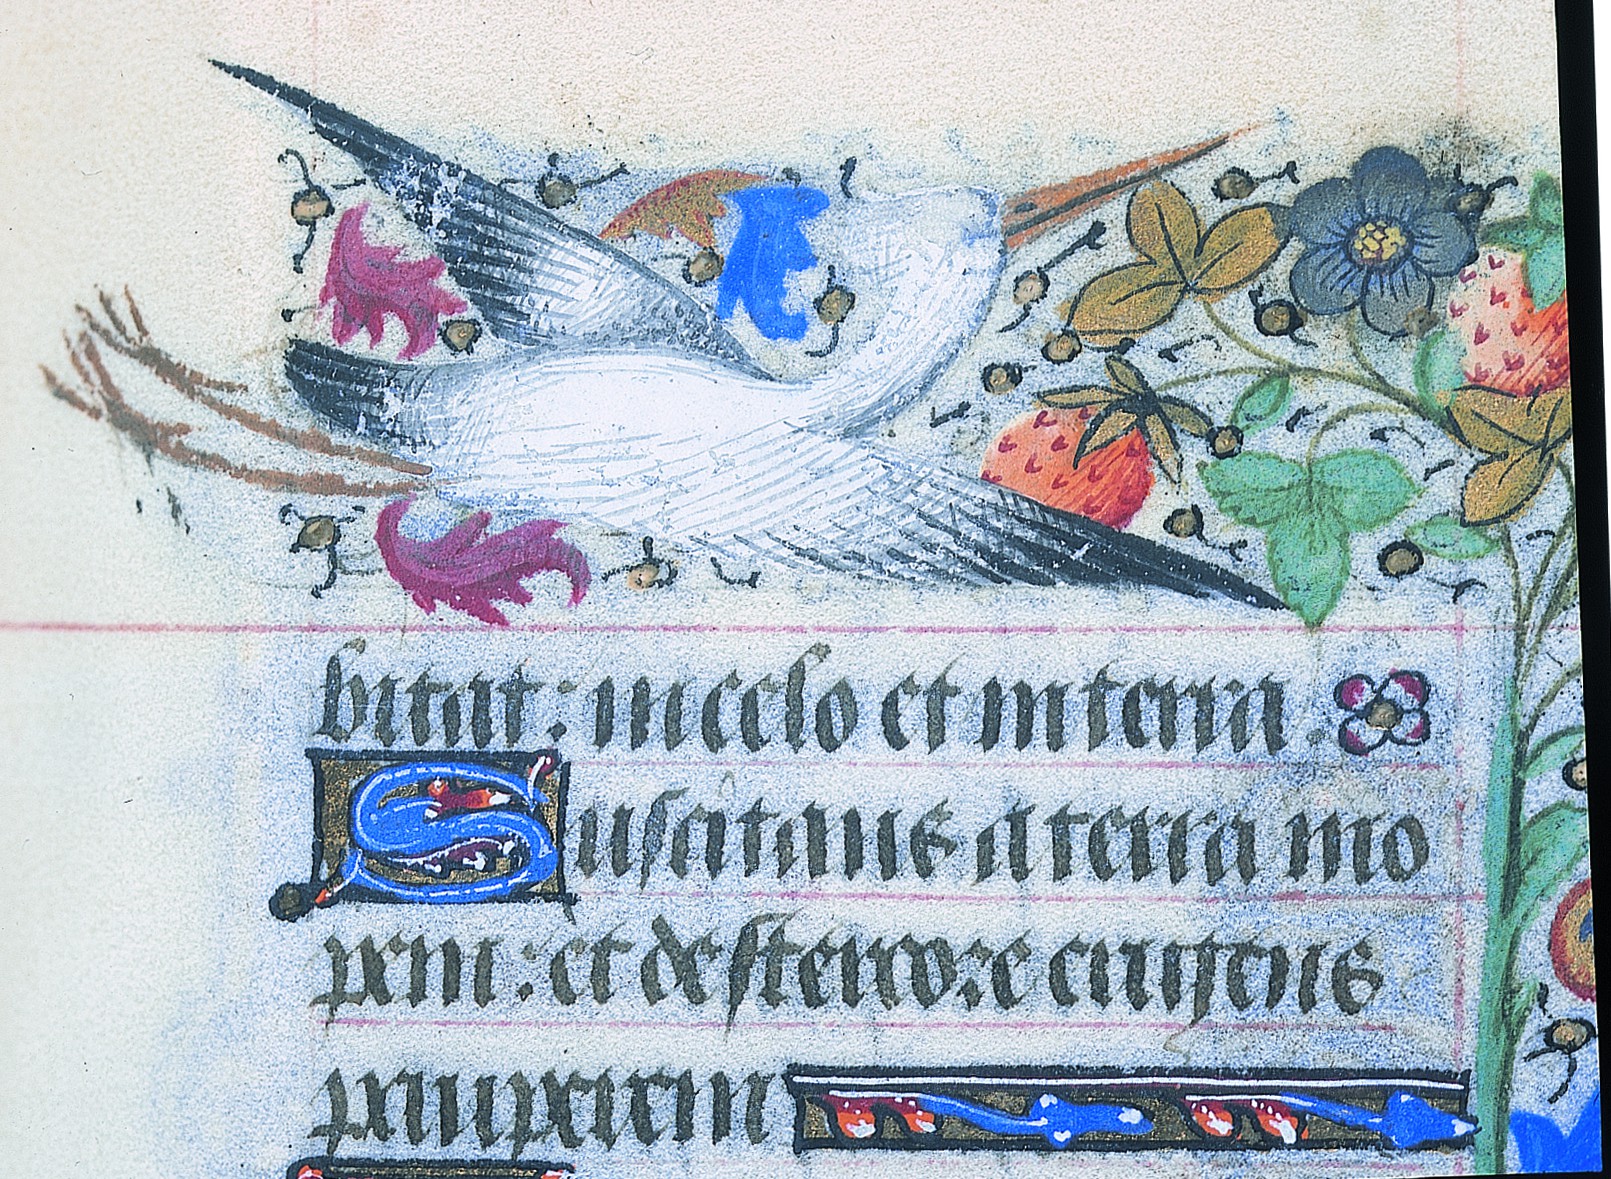 bitat : in celo et in terra
Suscitans a terra ino
pem : et de stercore erigens
pauperem